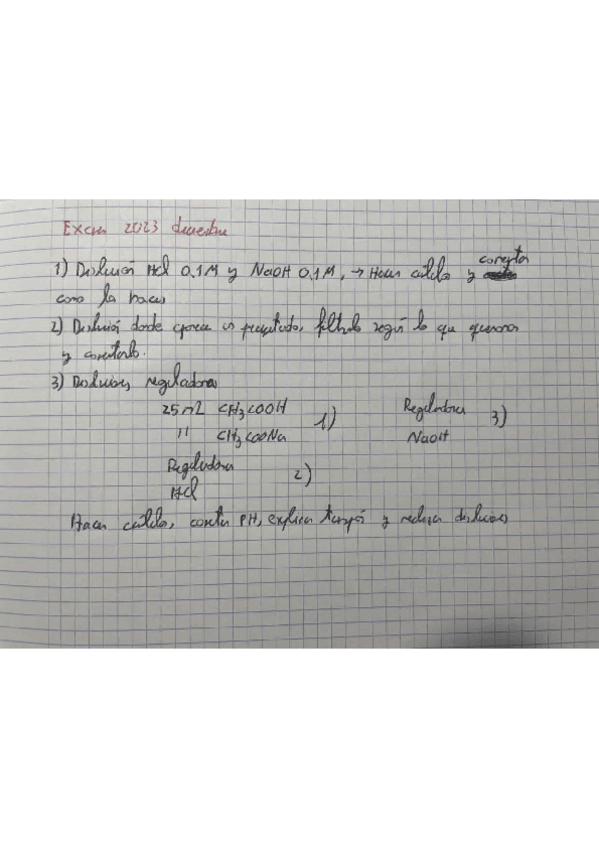 Examen 2023 diciembre
1) Disolución HCl 0,1M y NaOH 0,1M, → Hacer cálculos y comentar
como la haces
2) Disolución donde aparece un precipitado, filtrado según lo que queramos
y comentarlo.
3) Disoluciones reguladoras
25 mL CH3COOH
" CH3COONa 1)
Reguladora
NaOH 3)
Reguladora
HCl 2)
Hacer cálculos, comentar PH, explicar tampón y realizar disoluciones